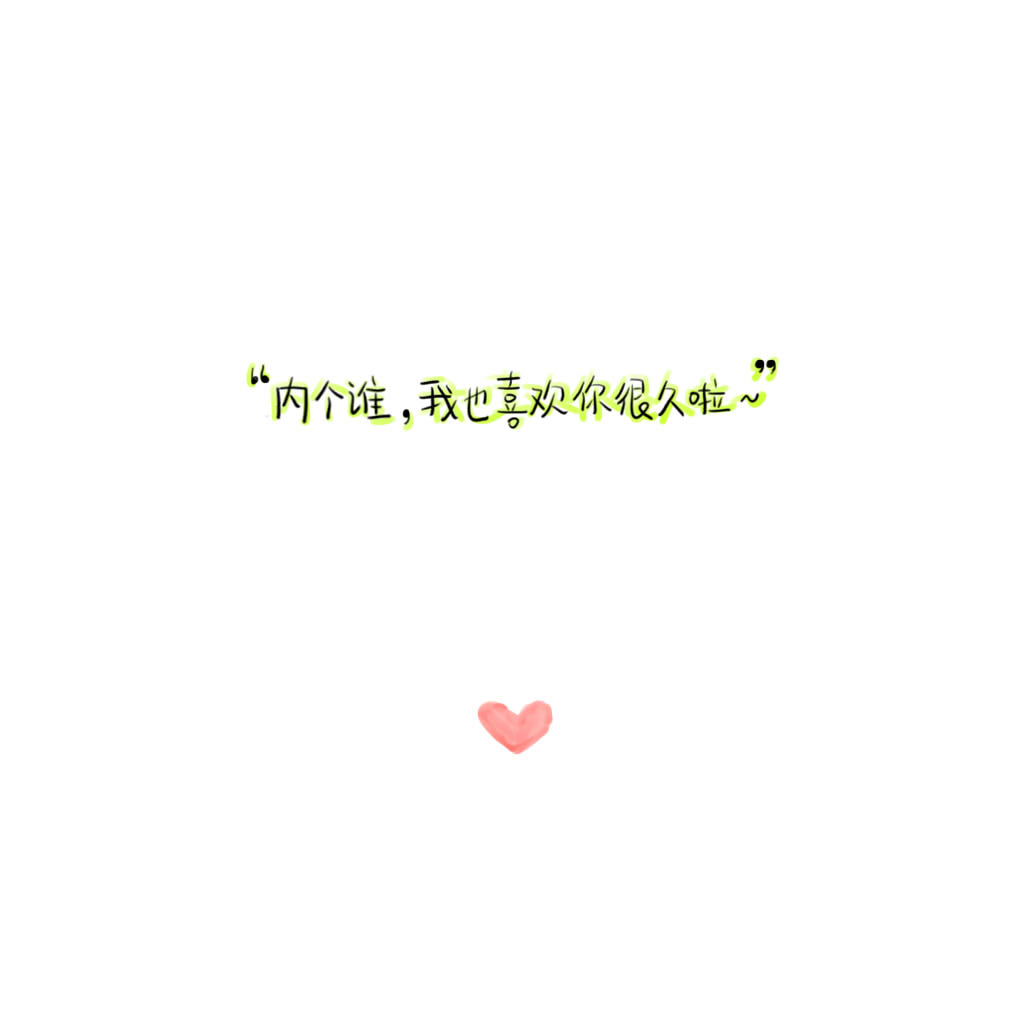 “内个谁，我也喜欢你很久啦~”